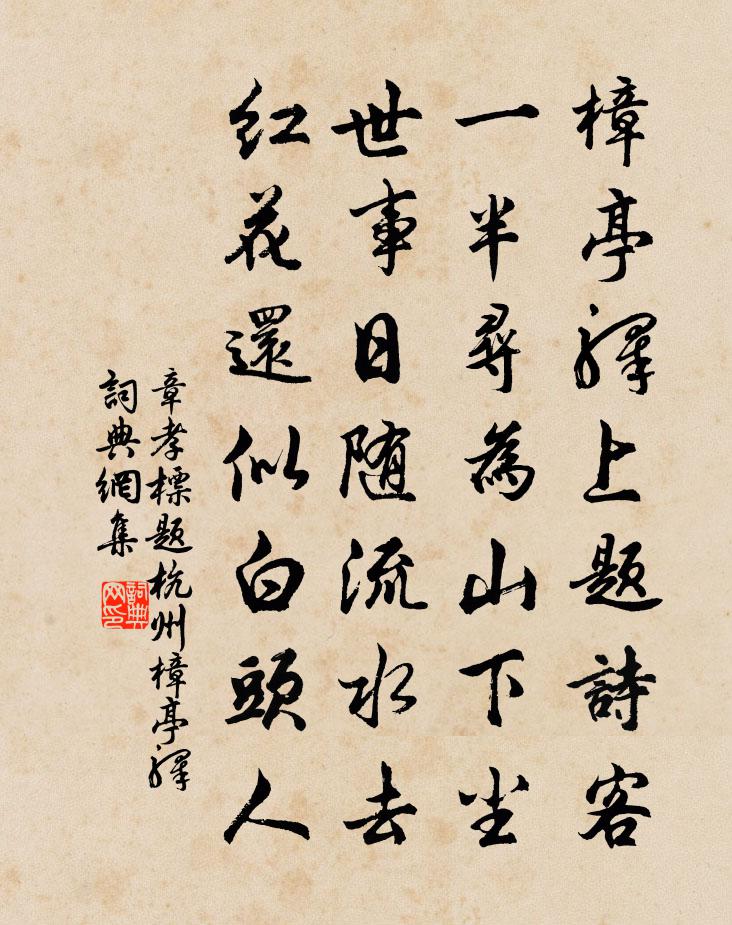 樟亭驛上题詩客
一半尋為山下尘
世事日随流水去
红花還似白頭人
章孝標题杭州樟亭驛
詞典網集
詞典
网印